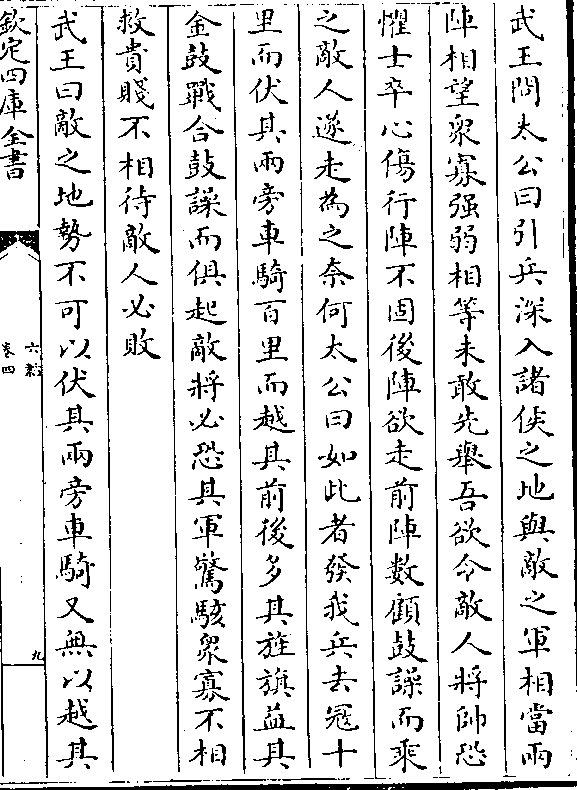 武王問太公曰引兵深入諸侯之地與敵之軍相當兩
陣相望衆寡强弱相等未敢先舉吾欲令敵人將帥恐
懼士卒心傷行陣不固後陣欲走前陣數顧鼓譟而乘
之敵人遂走為之奈何太公曰如此者發我兵去冦十
里而伏其兩旁車騎百里而越其前後多其旌旗益其
金鼓戰合鼓譟而俱起敵將必恐其軍驚駭衆寡不相
救貴賤不相待敵人必敗
武王曰敵之地勢不可以伏其兩旁車騎又無以越其
欽定四庫全書
六韜
卷四
九